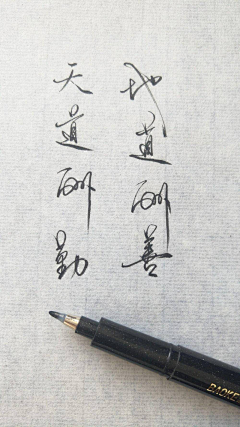 地道酬善
天道酬勤
BAOKE